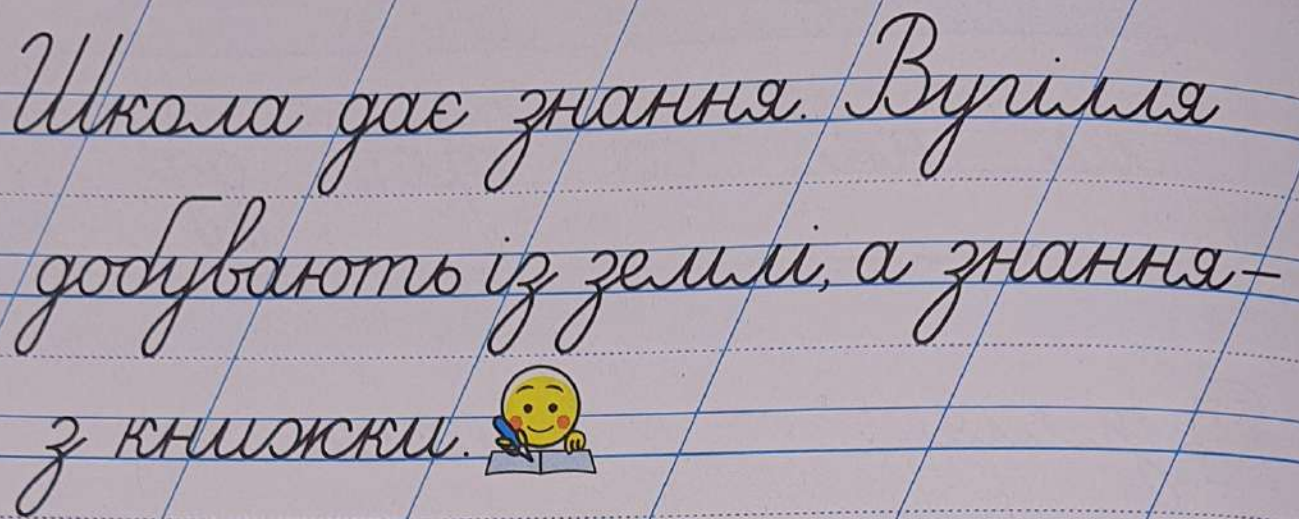 Школа дає знання. Вугілля
добувають із землі, а знання –
з книжки.